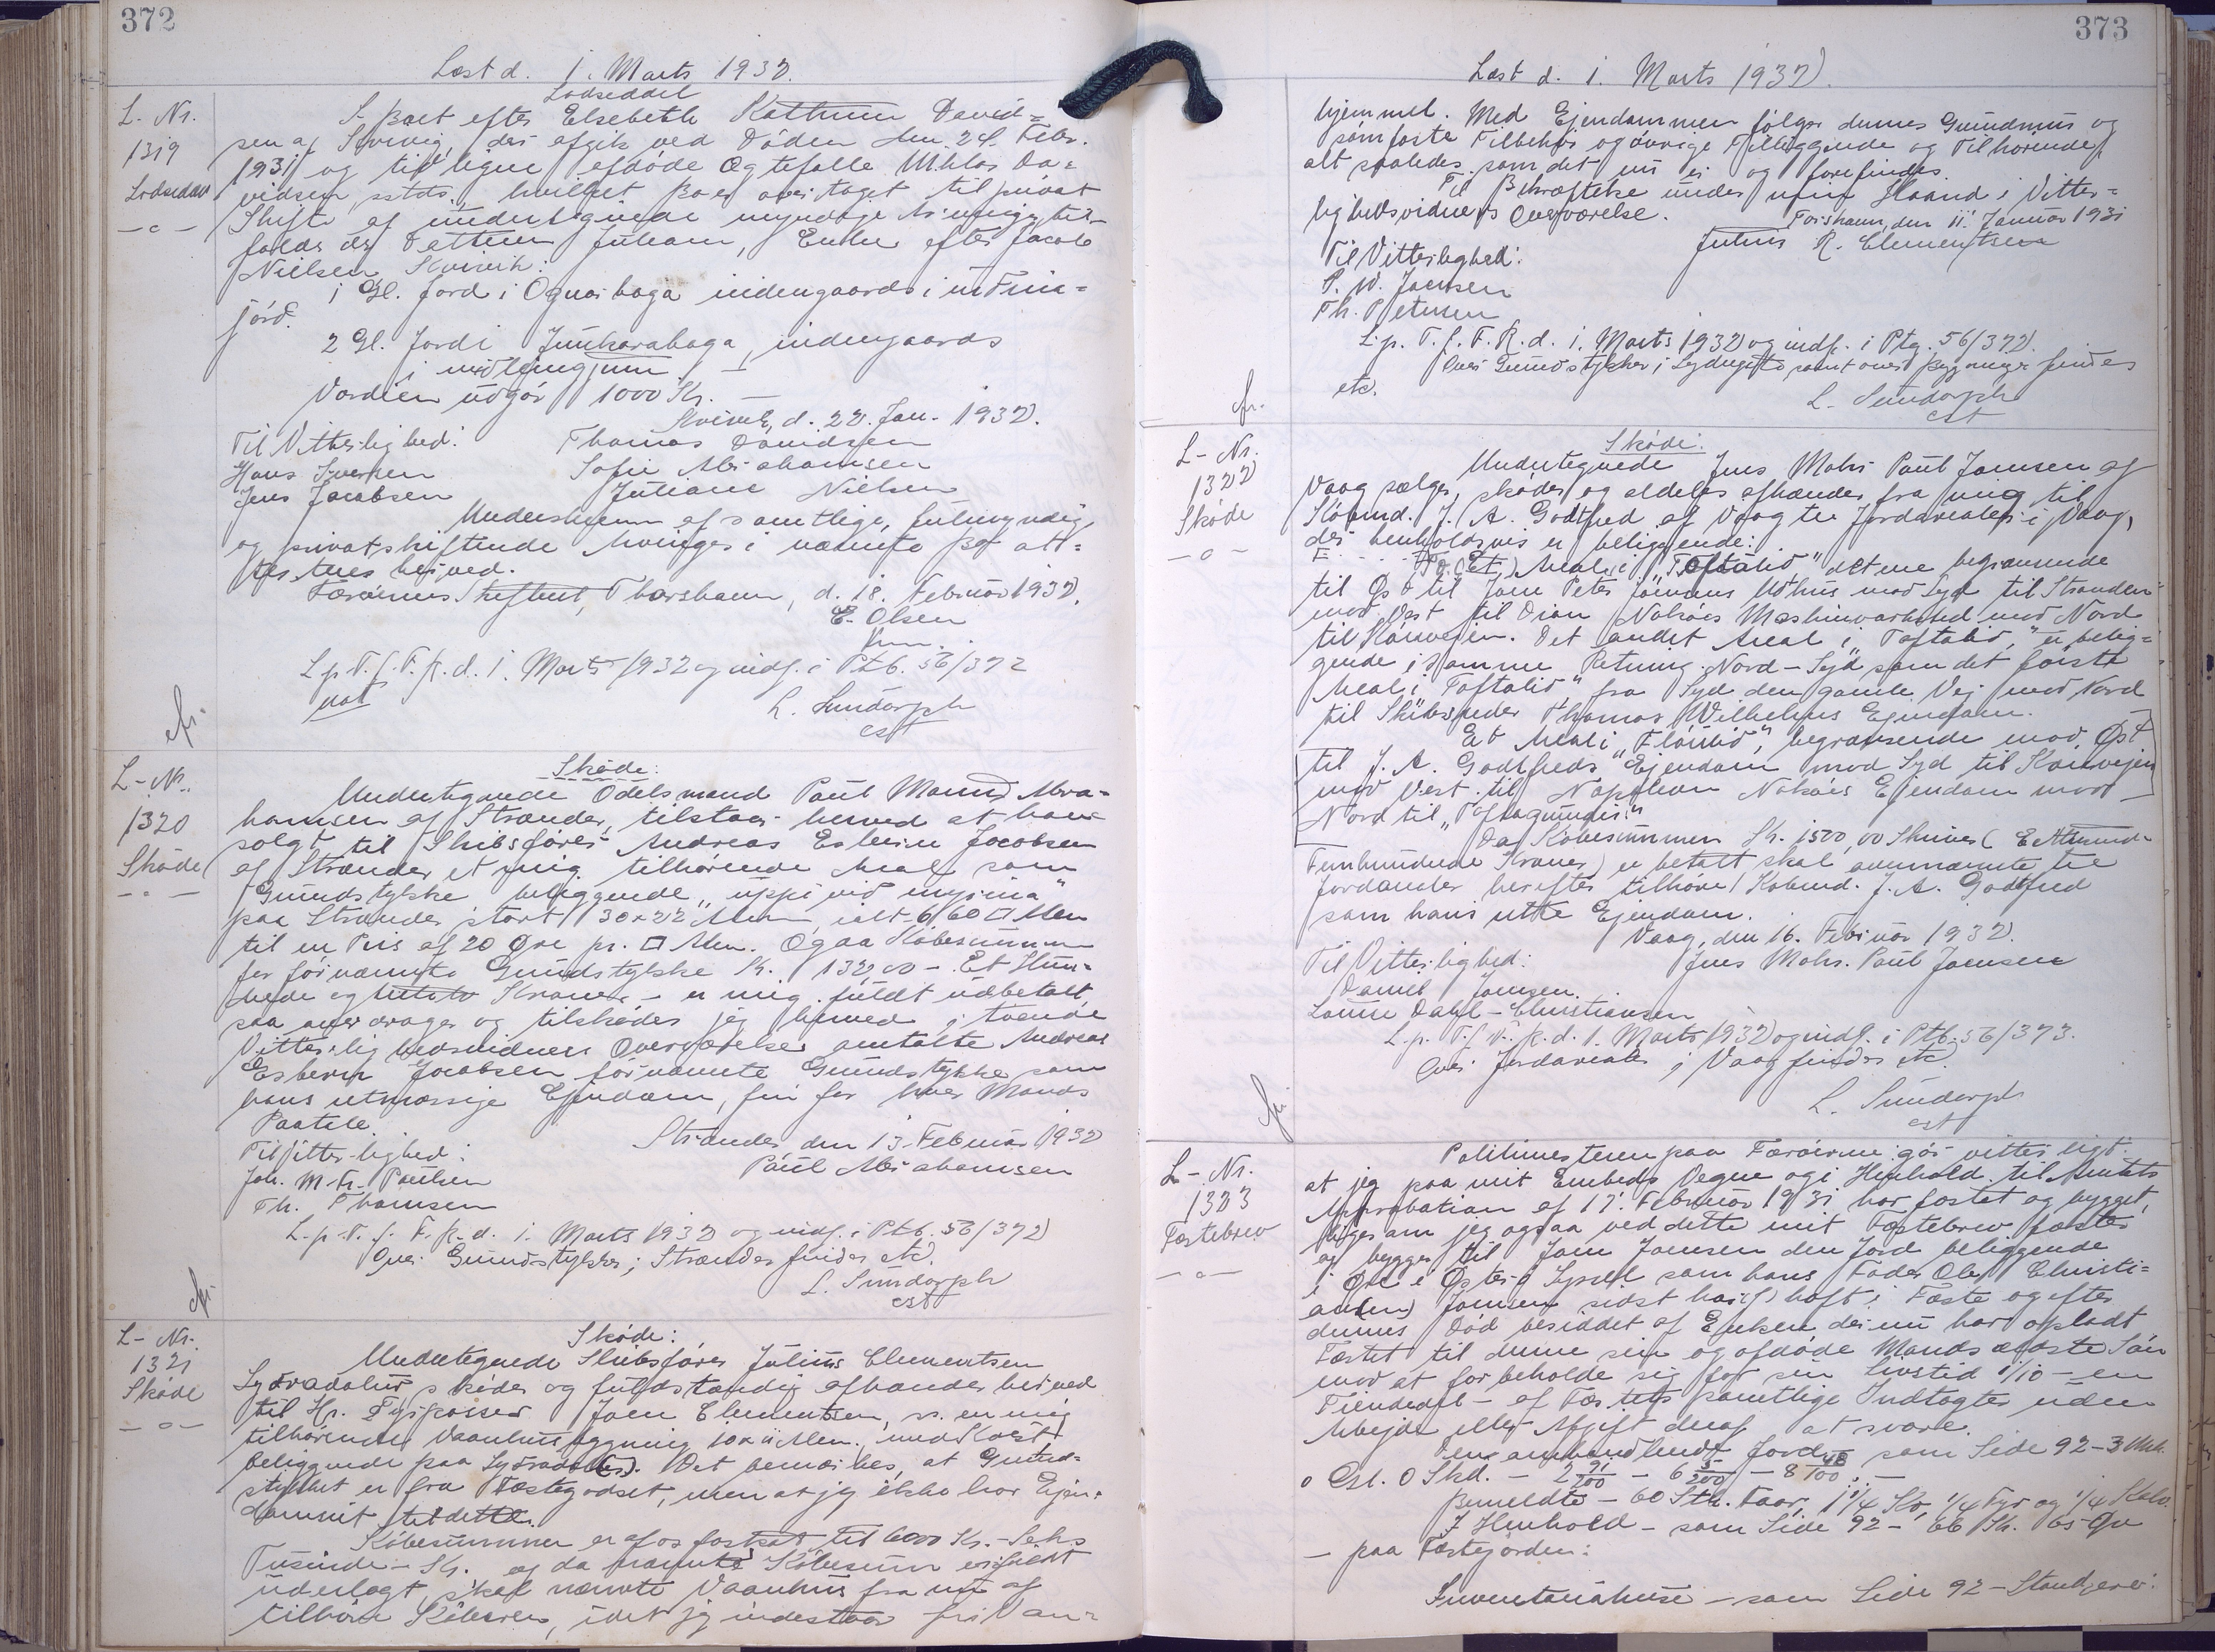 372
Læst d. 1. Marts 1932.
L. Nr.
1319
Lodseddel
I Boet efter Elsebeth Kathrine David=
sen af Kvivig, der afgik ved Døden den 24. Febr.
1931 og tidligere afdøde Ægtefælle Niklas Da=
vidsen sstds., hvilket Bo er overtaget til privat
Skifte af undertegnede myndige Arvinger til-
falder der Datteren Juliane, Enke efter Jacob
Nielsen, Kvivik:
1 Gl. Jord i Ognarhaga indengaards i
jørd.
2 Gl. Jord i Junkarahaga, indengaards
i
Værdien udgør 1000 Kr. —
Kvivik, d. 22. Jan. 1932.
Til Vitterlighed:
Thomas Davidsen
Hans Iversen
Sofie Abrahamsen
Jens Jacobsen
Juliane Nielsen
Underskrevne af samtlige, fuldmyndige,
og privatskiftende Arvinger i nævnte Bo att=
esteres herved.
Færøernes Skifteret, Thorshavn, d. 18. Februar 1932.
E. Olsen
L.p. T. f. F. R. d. 1. Marts 1932 og indf. i Ptb. 56/372
L. Sundorph
cst
L-Nr.
1320
Skøde
Skøde:
Undertegnede Odelsmand Paul Abra=
hamsen af Strænder, tilstaar herved at have
solgt til Skibsfører Andreas Esbern Jacobsen
af Strænder et mig tilhørende Areal som
Grundstykke beliggende „uppi vid myrina"
paa Strænder, stort 30×22 Alen, ialt 660 □ Alen
til en Pris af 20 Øre pr. □ Alen. Og da Købesummen
for førnævnte Grundstykke Kr. 132,00 - Et Hun=
drede og Kroner - er mig fuldt udbetalt,
saa overdrager og tilskøder jeg herved i tvende
Vitterlighedsvidners Overværelse omtalte Andreas
Esbern Jacobsen førnævnte Grundstykke som
hans retmæssige Ejendom, fri for hver Mands
Paatale.
Strænder, den 13. Februar 1932
Til Vitterlighed:
Paul Abrahamsen
Joh. M. Fr. Poulsen
Th. Thomsen
L.p. T. f. F. R. d. 1. Marts 1932 og indf. i Ptb. 56/372
Over Grundstykker i Strænder findes etc.
L. Sundorph
cst
L-Nr.
1321
Skøde
Skøde:
Undertegnede Skibsfører Julius Clementsen
Sydradalur skøder og fuldstændig afhænder herved
til Hr. Fyrpasser Joen Clementsen, en mig
tilhørende Vaanhusbygning 10 x 11 Alen, med
beliggende paa Sydradal. Det bemærkes, at Grund=
stykket er fra Fæstegodset, men at jeg ikke har Ejen-
domsret til dette.
Købesummen er af os fastsat til 6000 Kr. - Seks
Tusinde - Kr. og da nævnte Købesum er fuldt
uderlagt, skal nævnte Vaanhus fra nu af
tilhøre Køberen, idet jeg indestaar for Van=
373
Læst d. 1. Marts 1932
hjemmel. Med Ejendommen følger dennes Grundmur og
sømfaste Tilbehør og øvrige Tilliggende og Tilhørende,
alt saaledes som det nu er og forefindes.
Til Bekræftelse under min Haand i Vitter=
lighedsvidners Overværelse.
Torshavn, den 11. Januar 1931
Julius R. Clementsen
Til Vitterlighed:
P. W. Joensen
Th. Petersen
L.p. T. f. F. R. d. 1. Marts 1932 og indf. i Ptg. 56/372.
Over Grundstykker i samt over Bygninger findes
etc.
L. Sundorph
cst
L-Nr.
1322
Skøde
Skøde:
Undertegnede Jens Mohr Paul Joensen af
Vaag sælger, skøder og aldeles afhænder fra mig til
Købmd. J. A. Godtfred af Vaag tre Jordarealer i Vaag,
der henholdsvis er beliggende:
(Et) Areal i „Toftalid" dette begrænsende
til Øst til Joen Peter Joensens Udhus mod Syd til Stranden
mod Vest til Dion Nolsøes Maskinværksted mod Nord
til Køreveien. Det andet Areal i „Toftalid" er belig=
gende i samme Retning Nord-Syd som det første
Areal i „Toftalid" fra Syd den gamle Vej mod Nord
til Skibsreder Thomas Wilhelms Ejendom.
Et Areal i „Fløtlid", begrænsende mod Øst
til J. A. Godtfreds Ejendom mod Syd til Køreveien
mod Vest til Napoleon Nolsøes Ejendom mod
Nord til „Toftagrundir".
Da Købesummen Kr. 1500,00 Skriver (Et Tusind-
Femhundrede Kroner) er betalt skal ovennævnte tre
Jordander herefter tilhøre Købmd. J. A. Godtfred
som hans rette Ejendom.
Vaag, den 16. Februar 1932.
Til Vitterlighed:
Jens Mohr Paul Joensen
Daniel Joensen.
Louise Dahl-Christiansen
L.p. T. f. F. R. d. 1. Marts 1932 og indf. i Ptb. 56/373.
Over Jordarealer i Vaag findes etc
L. Sundorph
cst
L-Nr.
1323
Fæstebrev
Politimesteren paa Færøerne gør vitterligt:
at jeg paa mit Embeds Vegne og i Henhold til Amtets
Approbation af 17. Februar 1931 har fæstet og bygget,
ligesom jeg ogsaa ved dette mit Fæstebrev fæster
og bygger til Joen Joensen den Jord beliggende
i Øre i Østerø Syssel som hans Fader Ole Christi=
an(en) Joensen sidst har haft i Fæste og efter
dennes Død besiddet af Enken der nu har opladt
Fæstet til denne sin og afdøde Mands ældste Søn
mod at forbeholde sig for sin Livstid 1/10 - en
Tiendedel - af Fæstets samtlige Indtægter uden
Arbejde eller Afgift deraf at svare.
Den omhandlende Jord som Side 92-3 Mrk.
0 Gl. 0 Skd. - 2 91/100 - 6 5/200 - 8 48/100. -
Bemeldte - 60 Stk. Faar, 1 1/4 Ko, 1/4 Tyr og 1/4 Kalv.
I Henhold - som Side 92 - 66 Kr. 65 Øre
— paa Fæstejorden:
Inventariahuse - som Side 92 -